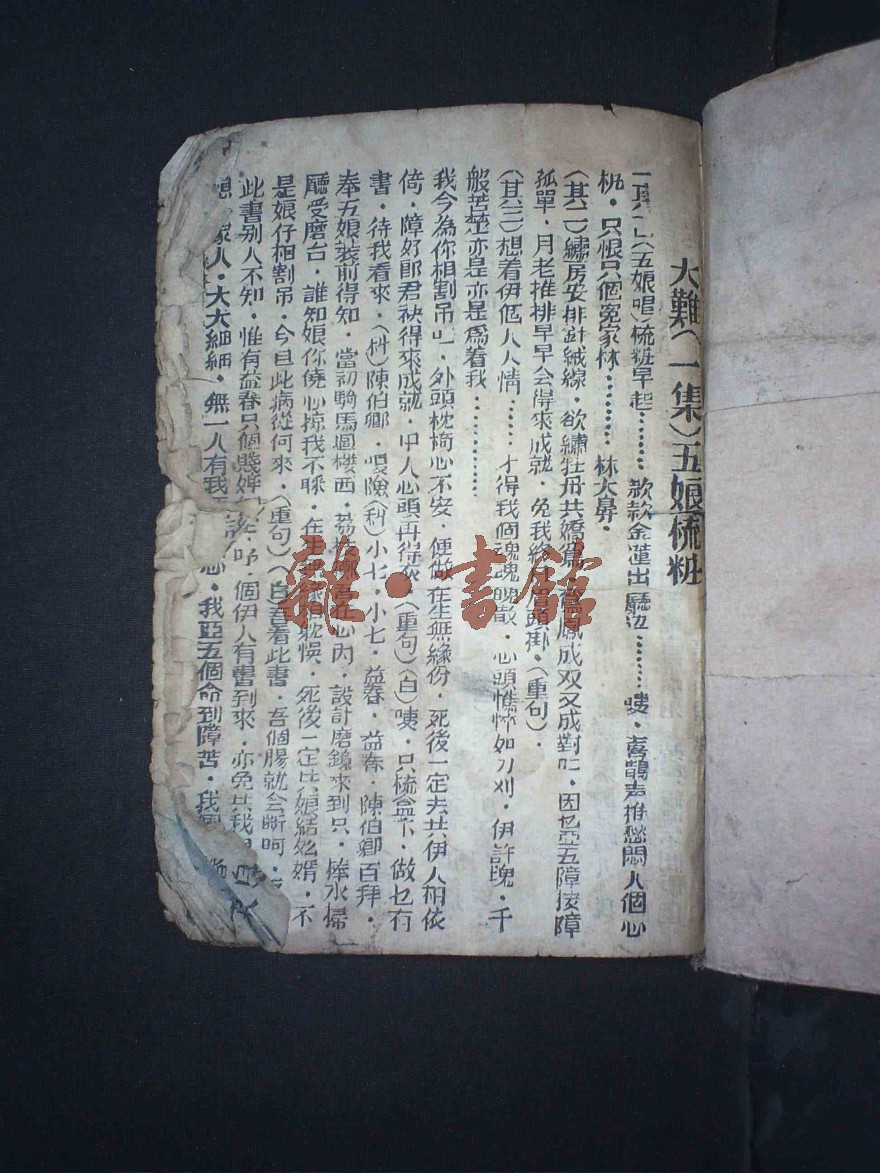 大難（一集）五娘梳粧
（五娘唱）梳粧早起⋯⋯⋯款款金蓮出廳边⋯⋯⋯噯，喜鵲声推愁悶人個心
·只恨只個冤家林⋯⋯⋯林大鼻·
（其二）繡房安排針絨線，欲繡牡丹共嬌鳳成双又成對，因乜亞五障按障
孤單，月老推排早早会得來成就，免我終眉頭掛·（重句）·
（其三）想着伊個人人情⋯⋯才得我個魂魂魄散，心頭憔悴如刀刈，伊許醜，千
般苦楚亦是亦是為着我⋯⋯⋯
我今為你相割吊，外頭枕椅心不安，便做在生無緣份，死後一定去共伊人相依
倚，障好郎君袂得來成就，中人心頭再得（重句）（白）咦，只梳盒下，做乜有
書，待我看來，陳伯卿，喂險（科）小七，小七，益春，益春，陳伯卿百拜，
奉五娘裝前得知，當初騎馬過楼西，荔枝在心內，設計磨鏡來到只，捧水掃
廳受磨台，誰知娘你僥心掠我不睬，在生耽悞，死後一定共娘結婚，不
是娘仔相割吊，今旦此病從何來，（重句）（白）吾看此書，吾個腸就会断呵，
此書别人不知，惟有益春只個賤婢個伊人有書到來，亦免共我
家人，大大細細，無一人有我心，我亞五個命到障苦，我
龍·書館